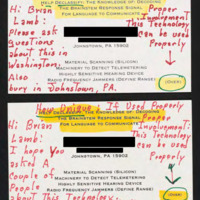 Help Declassify: The Knowledge of Decoding
The Brainstem Response Signal
For Language to Communicate
Hi: Brian
Lamb:
Please ask
Questions
About this in
Washington.
Also
bury in Johnstown, PA.
Proper
Involvement:
This Technology
Can be used
Properly
Johnstown, PA 15902
Material Scanning (Silicon)
Machinery to Detect Telemetering
Highly Sensitive Hearing Device
Radio Frequency Jammers (Define Range)
(Over)
How Unique: If Used Properly
Help Declassify: The Knowledge of Decoding
The Brainstem Response Signal
For Language to Communicate
Hi Brian
Lamb:
I hope you
Have
asked
A
Couple of
People
About This Technology.
Proper
Involvement:
This Technology
Can be
used
Properly
Johnstown, PA 15902
Material Scanning (Silicon)
Machinery to Detect Telemetering
Highly Sensitive Hearing Device
Radio Frequency Jammers (Define Range)
(Over)